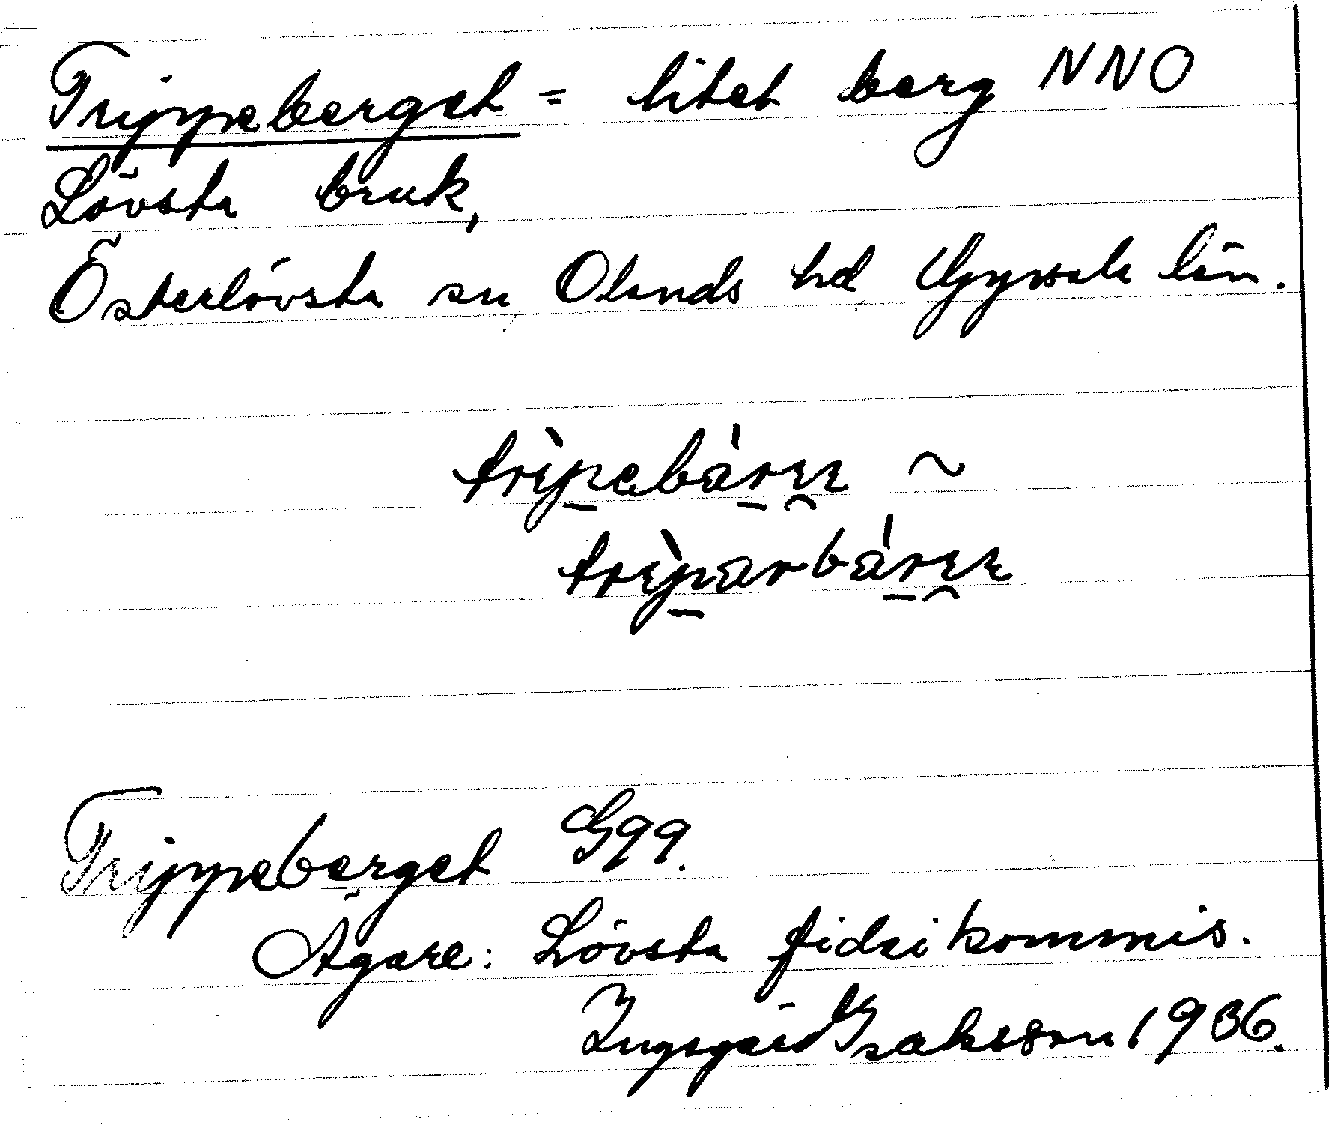 Trippeberget = litet berg NNO
Lövsta bruk,
Österlövsta sn Olands hd Uppsala län.
trìpebár
trìparbár
Trippeberget G99.
Ägare: Lövsta fideikommis.
Ingegärd Isaksson 1936.